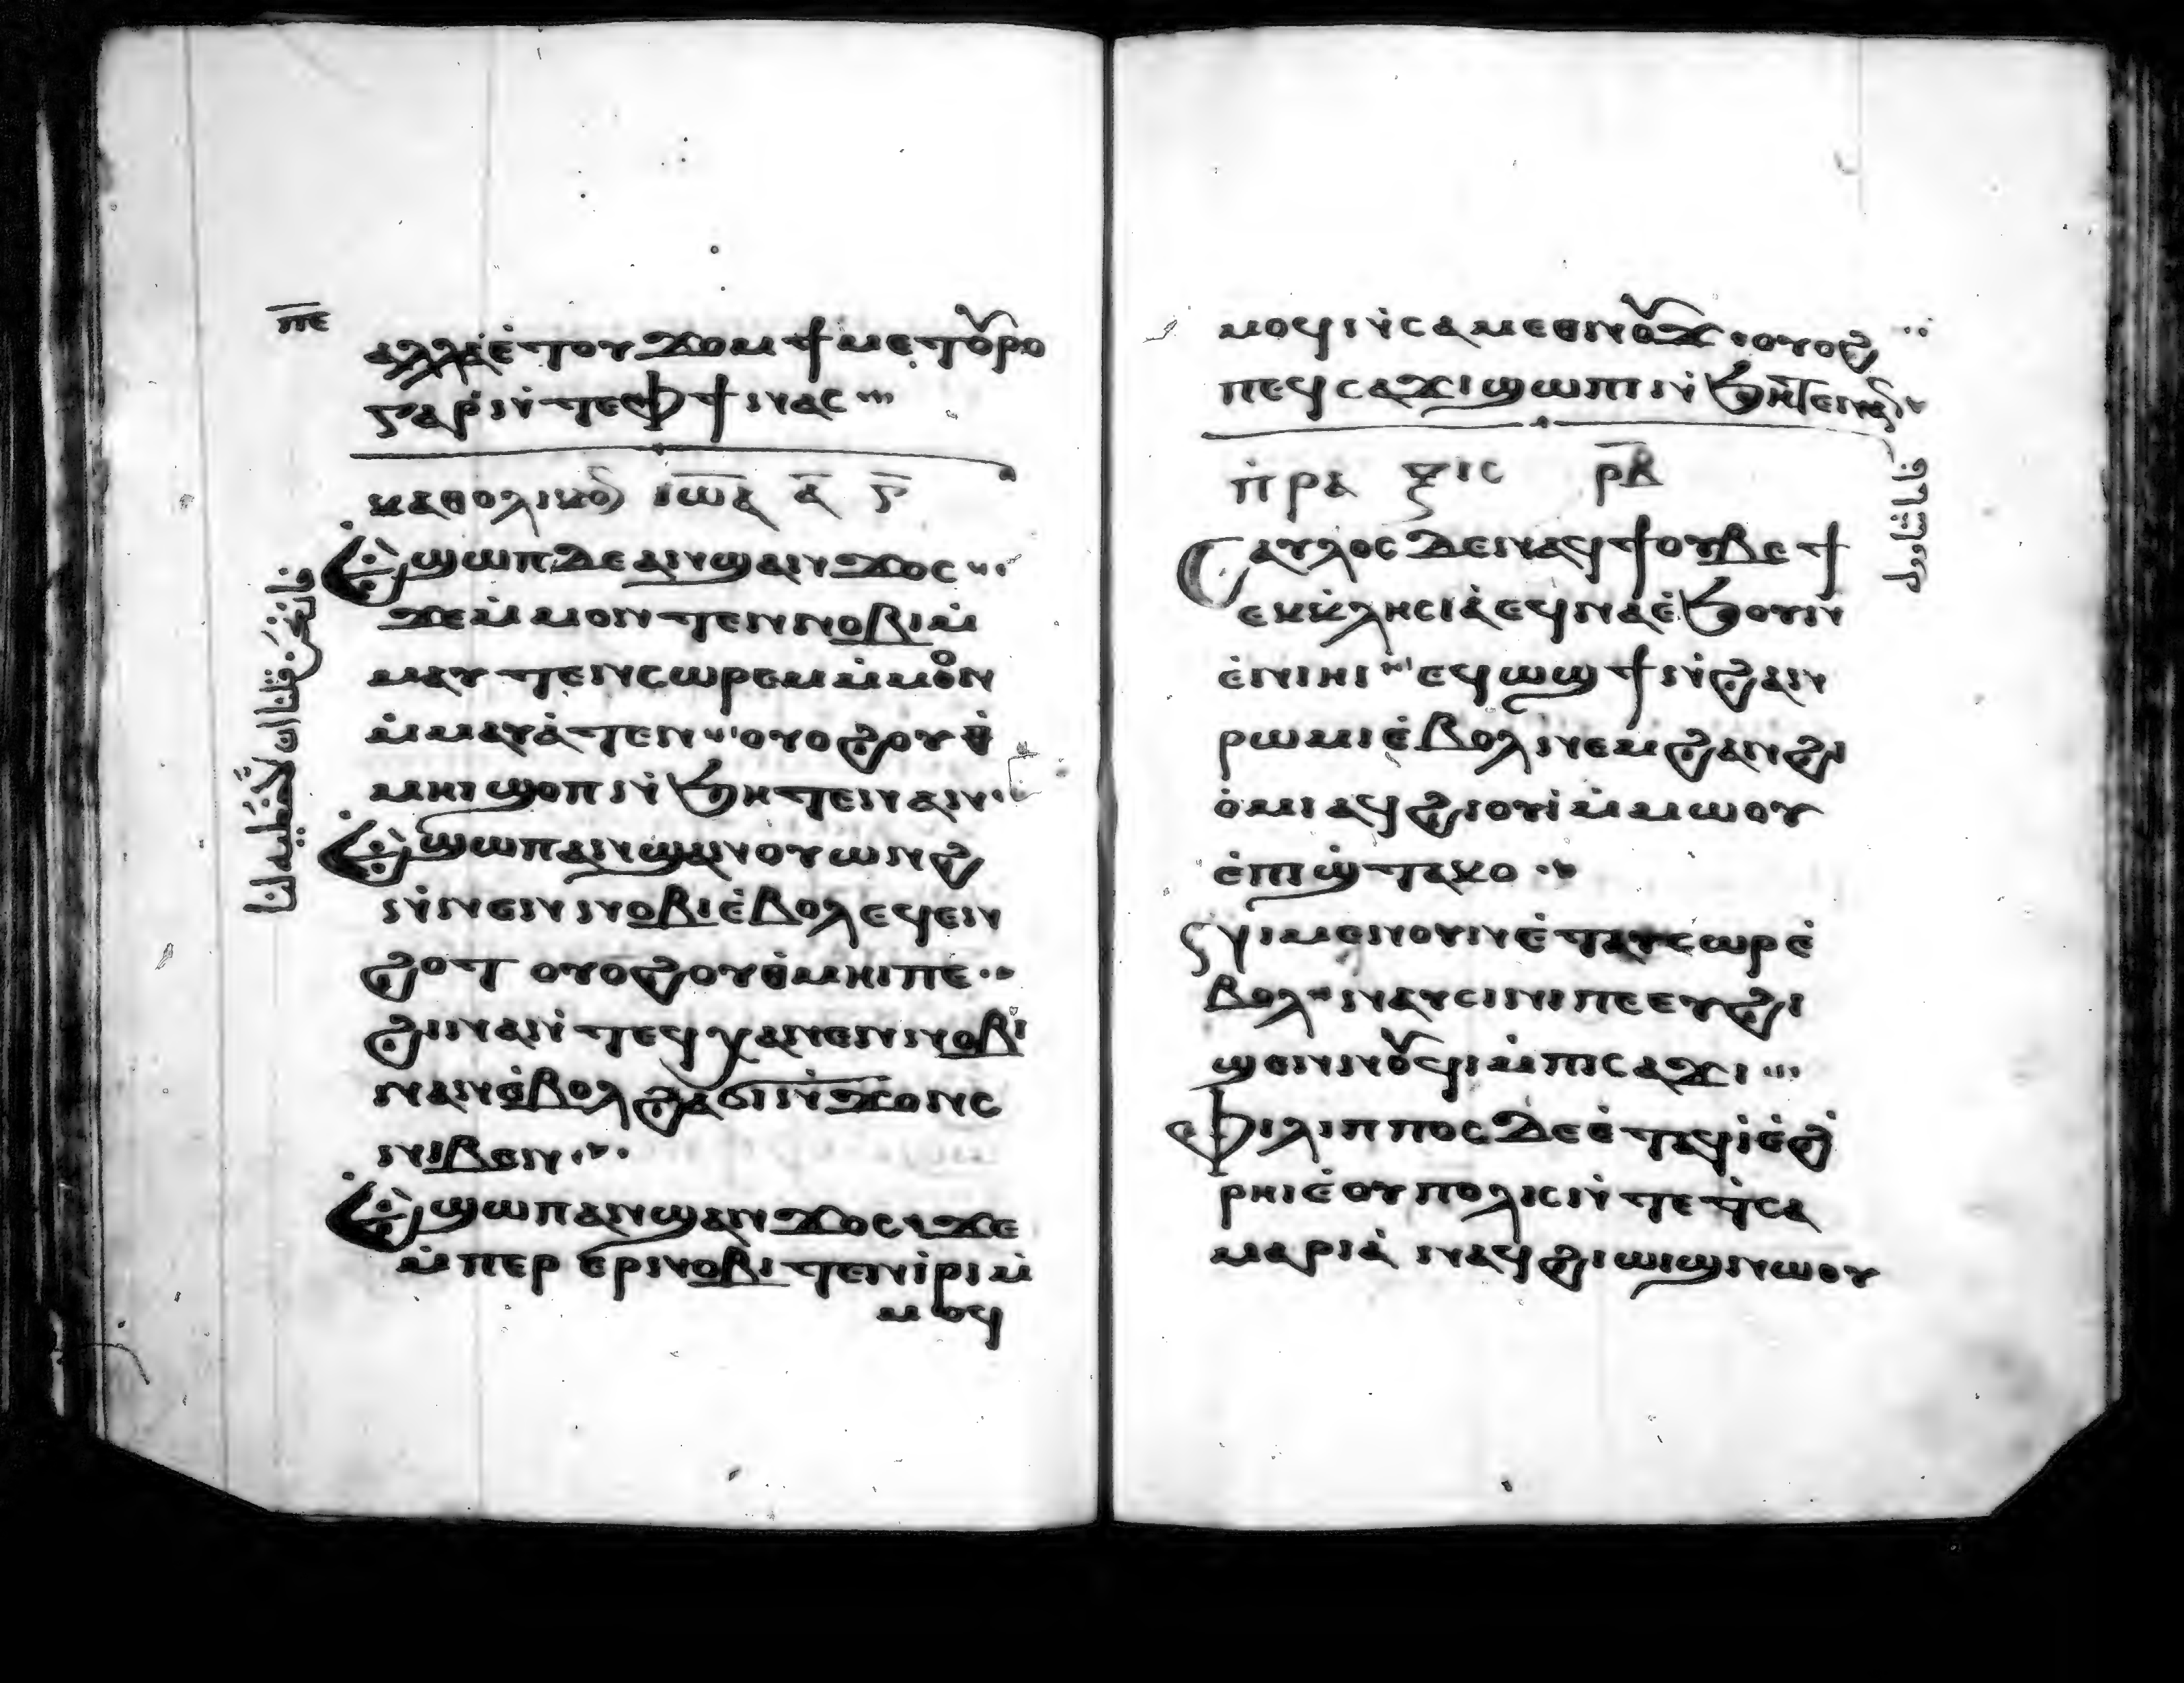 ⲡⲉ
ⲁⲗⲗⲁ ⲉ̇ⲧⲟⲩϫⲟⲙ ϯⲙⲉⲧⲟⲩⲣⲟ
ⲅⲁⲣ ⲛ̇ⲧⲉ ⲫϯ ⲛⲁⲥ
ⲕⲁⲑⲟⲗⲓⲕⲟⲛ ⲓⲱⲁ ⲁ̅ ⲅ̅
Ⲉϣⲱⲡ ⲇⲉ ⲁⲛϣⲁⲛϫⲟⲥ
ϫⲉ ⲙ̇ⲙⲟⲛⲧⲉⲛ ⲛⲟⲃⲓ ⲙ̇
ⲙⲁⲩ ⲧⲉⲛⲥⲱⲣⲉⲙ ⲙ̇ⲙⲟⲛ
ⲙ̇ⲙⲁⲩⲁ̇ⲧⲉⲛ ⲟⲩⲟϩ ⲟⲩⲑ̇
ⲙⲏⲓ ϣⲟⲡ ⲛ̇ϧⲏⲧⲉⲛ ⲁⲛ
Ⲉϣⲱⲡ ⲁⲛϣⲁⲛⲟⲩⲱⲛϩ
ⲛ̇ⲛⲉⲛⲛⲟⲃⲓ ⲉ̇ⲃⲟⲗ ϥⲉⲛ
ϩⲟⲧ ⲟⲩⲟϩ ⲟⲩⲑ̇ⲙⲏⲓ ⲡⲉ
ϩⲓⲛⲁ ⲛ̇ⲧⲉϥⲭⲁ ⲛⲉⲛⲛⲟⲃⲓ
ⲛⲁⲛ ⲉ̇ⲃⲟⲗ ϩⲁ ϭⲓⲛ̇ϫⲟⲛⲥ
ⲛⲓⲃⲉⲛ
Ⲉϣⲱⲡ ⲁⲛϣⲁⲛϫⲟⲥ ϫⲉ
ⲙ̇ⲡⲉⲣ ⲉⲣⲛⲟⲃⲓ ⲧⲉⲛⲓ̇ⲣⲓ ⲙ̇
ⲙⲟϥ
فان نحن قلنا ان لا خطيه لنا
ⲙⲟϥ ⲛ̇ⲥⲁⲙⲉⲑⲛⲟⲩϫ ⲟⲩⲟϩ
ⲡⲉϥⲥⲁϫⲓ ϣⲱⲡ ⲛ̇ϧⲏⲧⲉⲛ ⲁⲛ
ⲡ̇ⲣⲁⲝⲓⲥ ⲣ̅ⲃ̅
Ⲥⲁⲩⲗⲟⲥ ⲇⲉ ⲛⲁϥϯ ⲟⲩⲃⲉ ϯ
ⲉⲕⲕ̇ⲗⲏⲥⲓⲁ̇ ⲉϥⲛⲁ ⲉ̇ϧⲟⲩⲛ
ⲉ̇ⲛⲓⲏⲓ ⲉϥⲱϣϯ ⲛ̇ϩⲁⲛ
ⲣⲱⲙⲓ ⲉ̇ⲃⲟⲗ ⲛⲉⲙ ϩⲁⲛϩⲓ
ⲟ̇ⲙⲓ ⲁϥϩⲓⲟⲩⲓ̇ ⲙ̇ⲙⲱⲟⲩ
ⲉ̇ⲡⲓϣ̇ⲧⲉⲕⲟ
ⲛⲓⲙⲉⲛⲟⲩⲛ ⲉ̇ⲧⲁⲩⲥⲱⲣ ⲉ̇
ⲃⲟⲗ ⲛⲁⲩⲥⲓⲛⲓ ⲡⲉ ⲉⲩϩⲓ
ϣⲉⲛⲛⲟⲩϥⲓ ⲙ̇ⲡⲓⲥⲁϫⲓ
Ⲫⲓⲗⲓⲡⲡⲟⲥ ⲇⲉ ⲉ̇ⲧⲁϥⲓ̇ ⲉ̇ϩ̇
ⲣⲏⲓ ⲉ̇ⲟⲩⲡⲟⲗⲓⲥ ⲛ̇ⲧⲉ ⲧ̇ⲥⲁ
ⲙⲁⲣⲓⲁ̇ ⲛⲁϥϩⲓⲱⲓϣ ⲛⲱⲟⲩ
فاما شاول